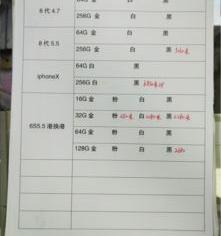 64G 金 白 黑
6代 4.7
256G 金 白 黑
64G 金 白 黑
8代 5.5
256G 金 白 黑
64G 白 黑
iphoneX
256G 白 黑
16G 金 粉 白 黑
32G 金 粉 白 黑
6S5.5 港换港
64G 金 粉 白 黑
128G 金 粉 白 黑